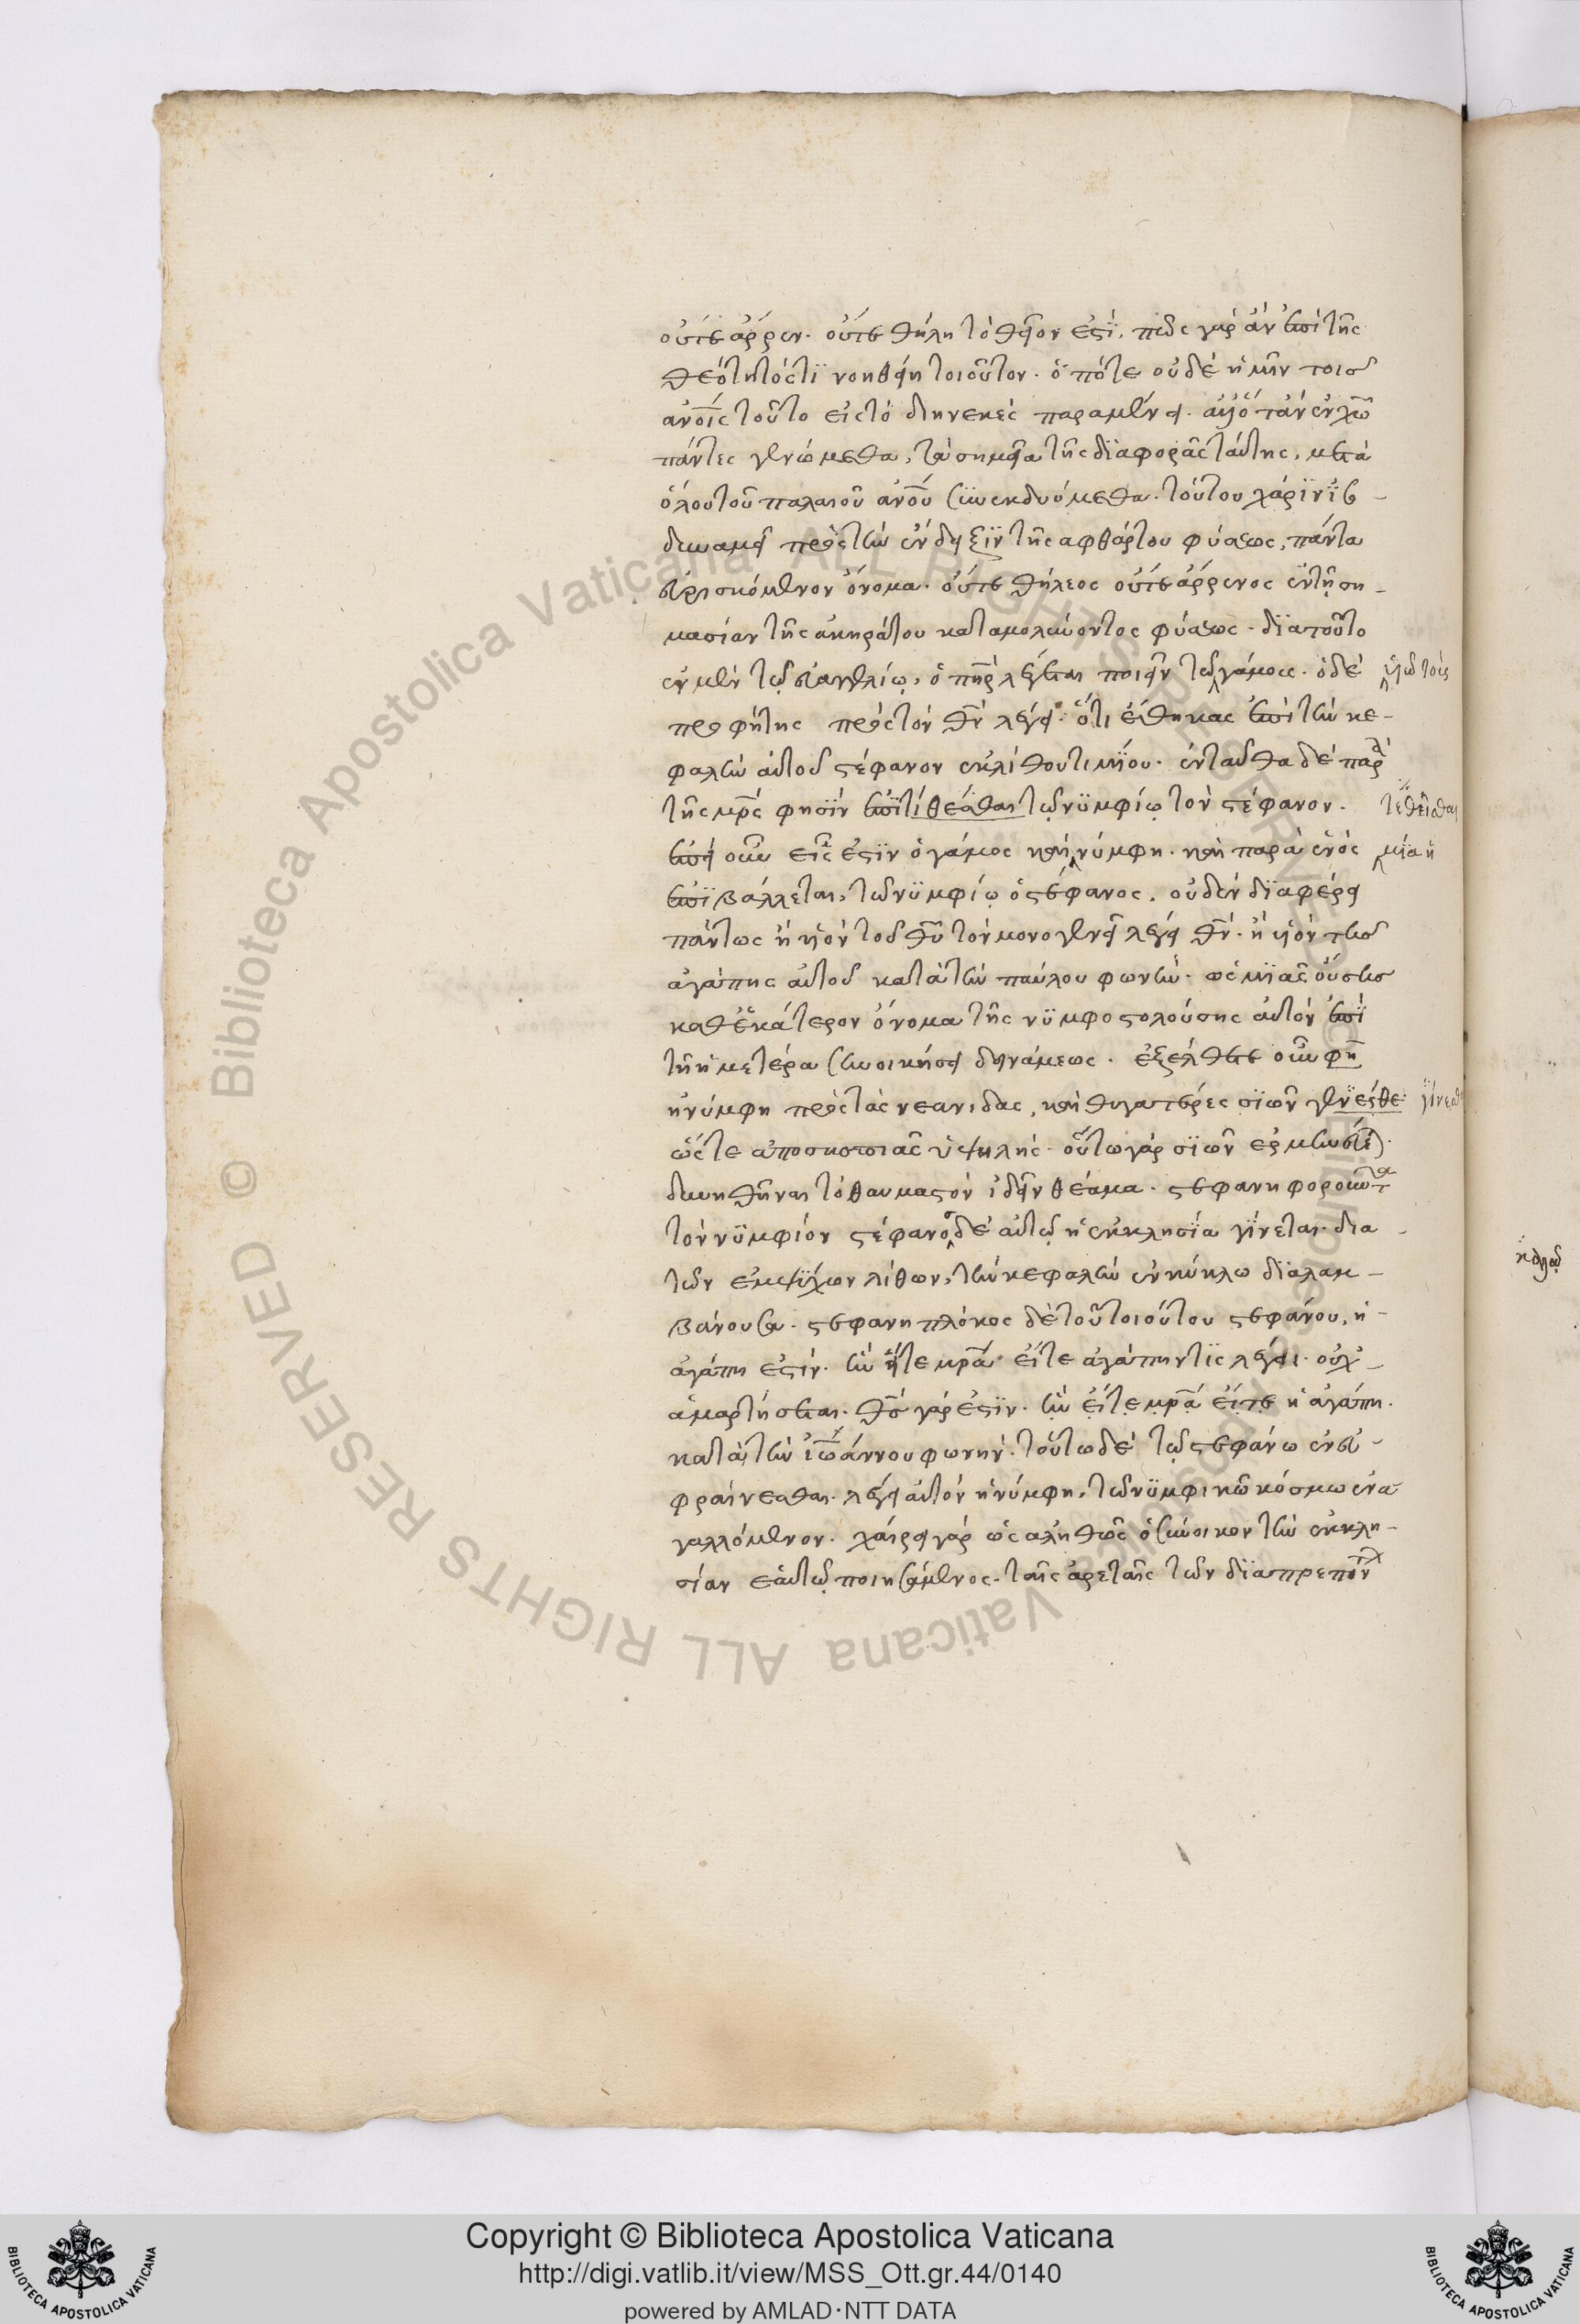 οὔτε ἄρρεν. οὔτε θῆλυ τὸ θεῖον ἐστϊ. πῶς γὰρ ἂν ἐπὶ τῆς
θεότητός τϊ νοηθείη τοιοῦτον. ὁπότε οὐδὲ ἡμῖν τοῖς
ἀνοῖς τοῦτο εἰς τὸ διηνεκὲς παραμένει. ἀλλ' ὅταν ἐν χω
πάντες γενώμεθα, τὰ σημεῖα τῆς διαφορᾶς ταύτης, μετὰ
ὅλου τοῦ παλαιοῦ ἀνοῦ συνεκδυόμεθα. τούτου χάρϊν ϊσο-
δυναμεῖ πρὸς τὴν ἔνδειξϊν τῆς αφθάρτου φύσεως, πάντα
εὑρισκόμενον ὄνομα. οὔτε θήλεος οὔτε ἄρρενος ἐν τῇ ση-
μασίαν τῆς ἀκηράτου καταμολύνοντος φύσεως. διατοῦτο
ἐν μὲν τῷ εὐαγγελίῳ, ὁ πηρ λέγεται ποιεῖν τῶ γάμους. ὁ δὲ
προφήτης πρὸς τὸν θν λέγει. ὅτι ἔθηκας ἐπὶ τὴν κε-
φαλὴν αὐτοῦ στέφανον ἐκ λίθου τιμίου. ἐνταῦθα δὲ παρὰ
τῆς μρς φησϊν ἐπϊτίθεσθαι τῷ νϋμφίῳ τὸν στέφανον.
τεθεῖσθαι
ἐπεὶ οὖν εἷς ἐστϊν ὁ γάμος καὶ νύμφη. καὶ παρὰ ἑνὸς
μία ἡ
ἐπϊβάλλεται, τῶ νϋμφίῳ ὁ στέφανος. οὐδὲν δϊαφέρει
πάντως ἢ υἱὸν τοῦ θυ τὸν μονογενεῖ λέγει θν. ἢ υἱὸν τῆς
ἀγάπης αὐτοῦ κατὰ τὴν παύλου φωνὴν. ὡς μϊᾶς οὔσης
καθ' ἑκάτερον ὄνομα τῆς νϋμφοστολούσης αὐτὸν ἐπϊ
τῇ ἡμετέρα συνοικήσει δυνάμεως. ἐξέλθετε οὖν φη
ἡ νύμφη πρὸς τὰς νεανιδας, καὶ θυγατέρες σϊὼν γενέσθε
γίνεσθε
ὥστε ἀποσκοπιᾶς ὑψηλῆς. οὕτω γὰρ σϊὼν ἑρμηνεύεται.
δυνηθῆναι τὸ θαυμαστὸν ἰδεῖν θέαμα. στεφανηφοροῦντα
τὸν νϋμφίον στέφανος δὲ αὐτῷ ἡ ἐκκλησϊα γϊνεται. δια
τῶν ἐμψύχων λίθων, τὴν κεφαλὴν ἐν κύκλω διαλαμ-
βάνουσα. στεφανηπλόκος δὲ τοῦ τοιούτου στεφάνου, ἡ
ἀγάπη ἐστίν. ἣν εἴτε μρα εἴτε ἀγάπην τϊς λέγει. οὐχ
ἁμαρτήσεται. θς γάρ ἐστϊν. ἣν εἴτε μρα εἴτε ἡ ἀγάπη.
κατὰ τὴν ἰωάννου φωνήν. τούτω δὲ τῷ στεφάνω ἐνευ-
φραίνεσθαι. λέγει αὐτὸν ἡ νύμφη, τῶ νϋμφικῶ κόσμω ἐνα
γαλλόμενον. χαίρει γὰρ ὡς ἀληθῶς ὁ σύνοικον τὴν ἐκκλη-
σίαν ἑαυτῷ ποιησάμενος. ταῖς ἀρεταῖς τῶν δϊαπρεπόν
Copyright © Biblioteca Apostolica Vaticana
http://digi.vatlib.it/view/MSS_Ott.gr.44/0140
powered by AMLAD·NTT DATA
BIBLIOTECA APOSTOLICA VATICANA
BIBLIOTECA APOSTOLICA VATICANA
© Biblioteca Apostolica Vaticana ALL RIGHTS RESERVED
© Biblioteca Apostolica Vaticana ALL RIGHTS RESERVED